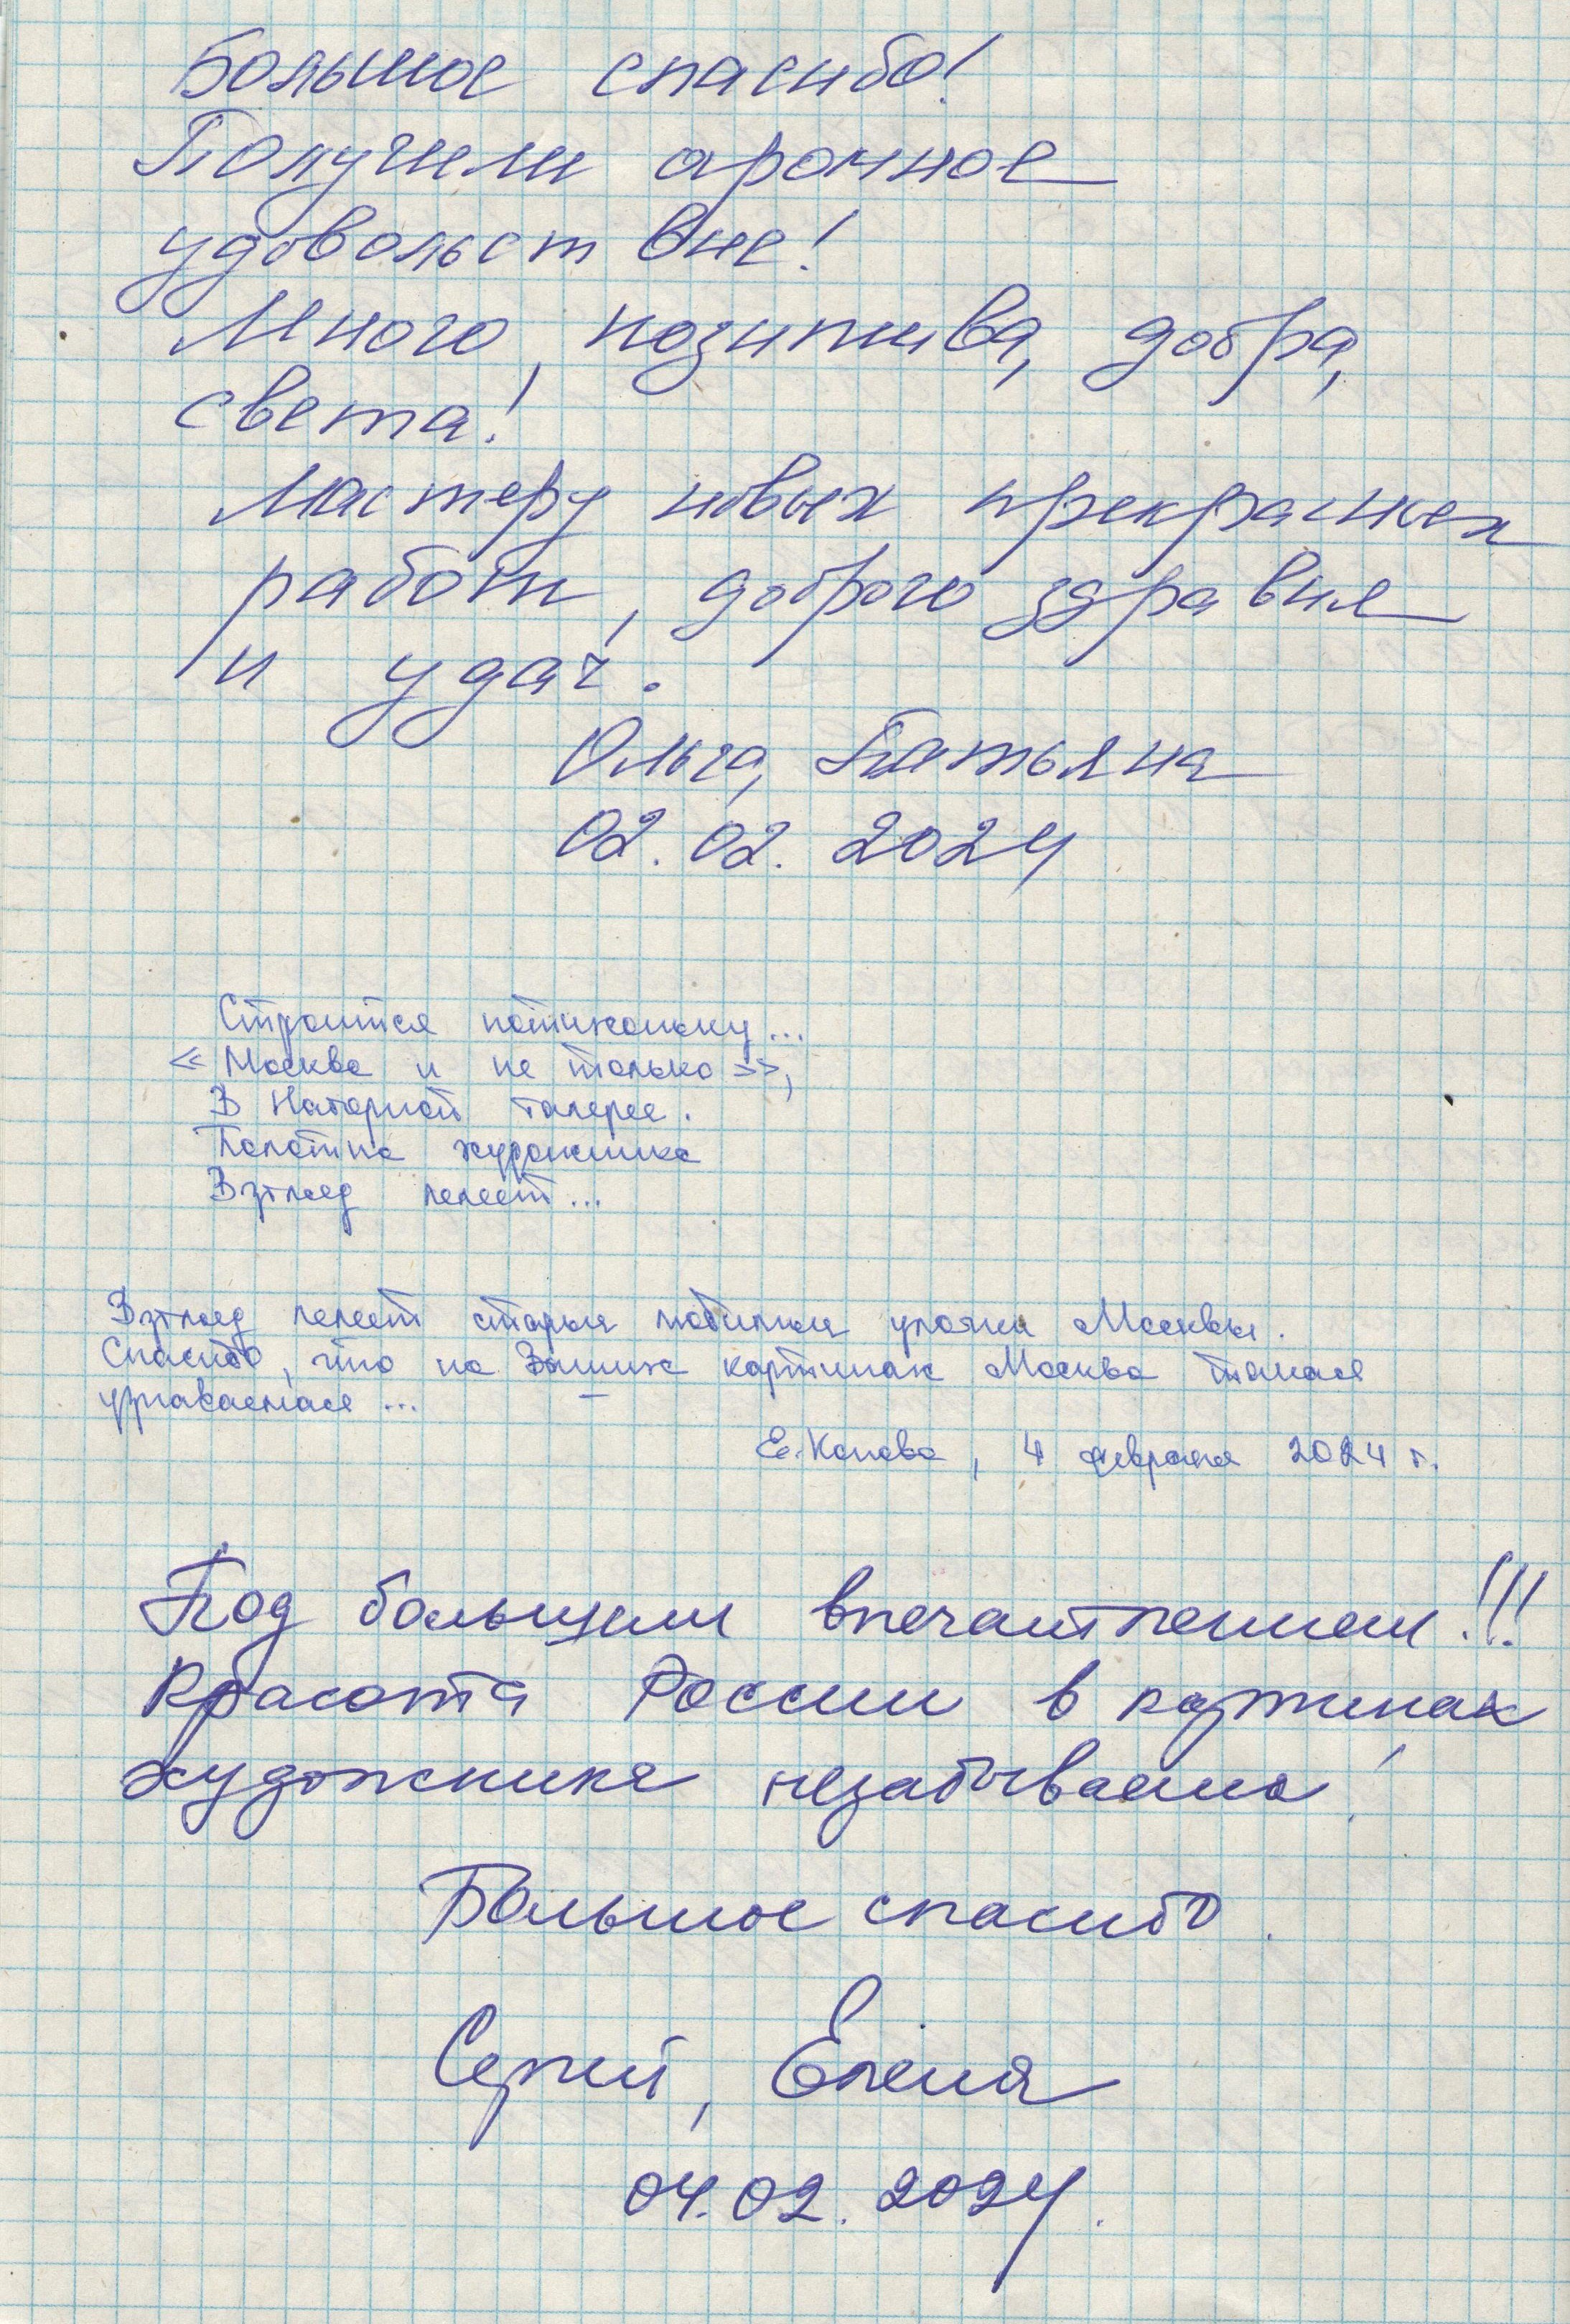 Большое спасибо!
Получили огромное
удовольствие!
Много, позитива, добра,
света!
Мастеру новых прекрасных
работ, доброго здравия
и удач.
Ольга, Татьяна
02.02.2024
Строится потихоньку...
«Москва и не только»,
В Нагорной галерее.
Полотна художника
Взгляд лелеет...
Взгляд лелеет старые любимые улочки Москвы.
Спасибо, что на Ваших картинах Москва такая
узнаваемая...
Е. Конева, 4 февраля 2024 г.
Под большим впечатлением!!!
Красота России в картинах
художника незабываема!
Большое спасибо.
Сергей, Елена
04.02.2024.